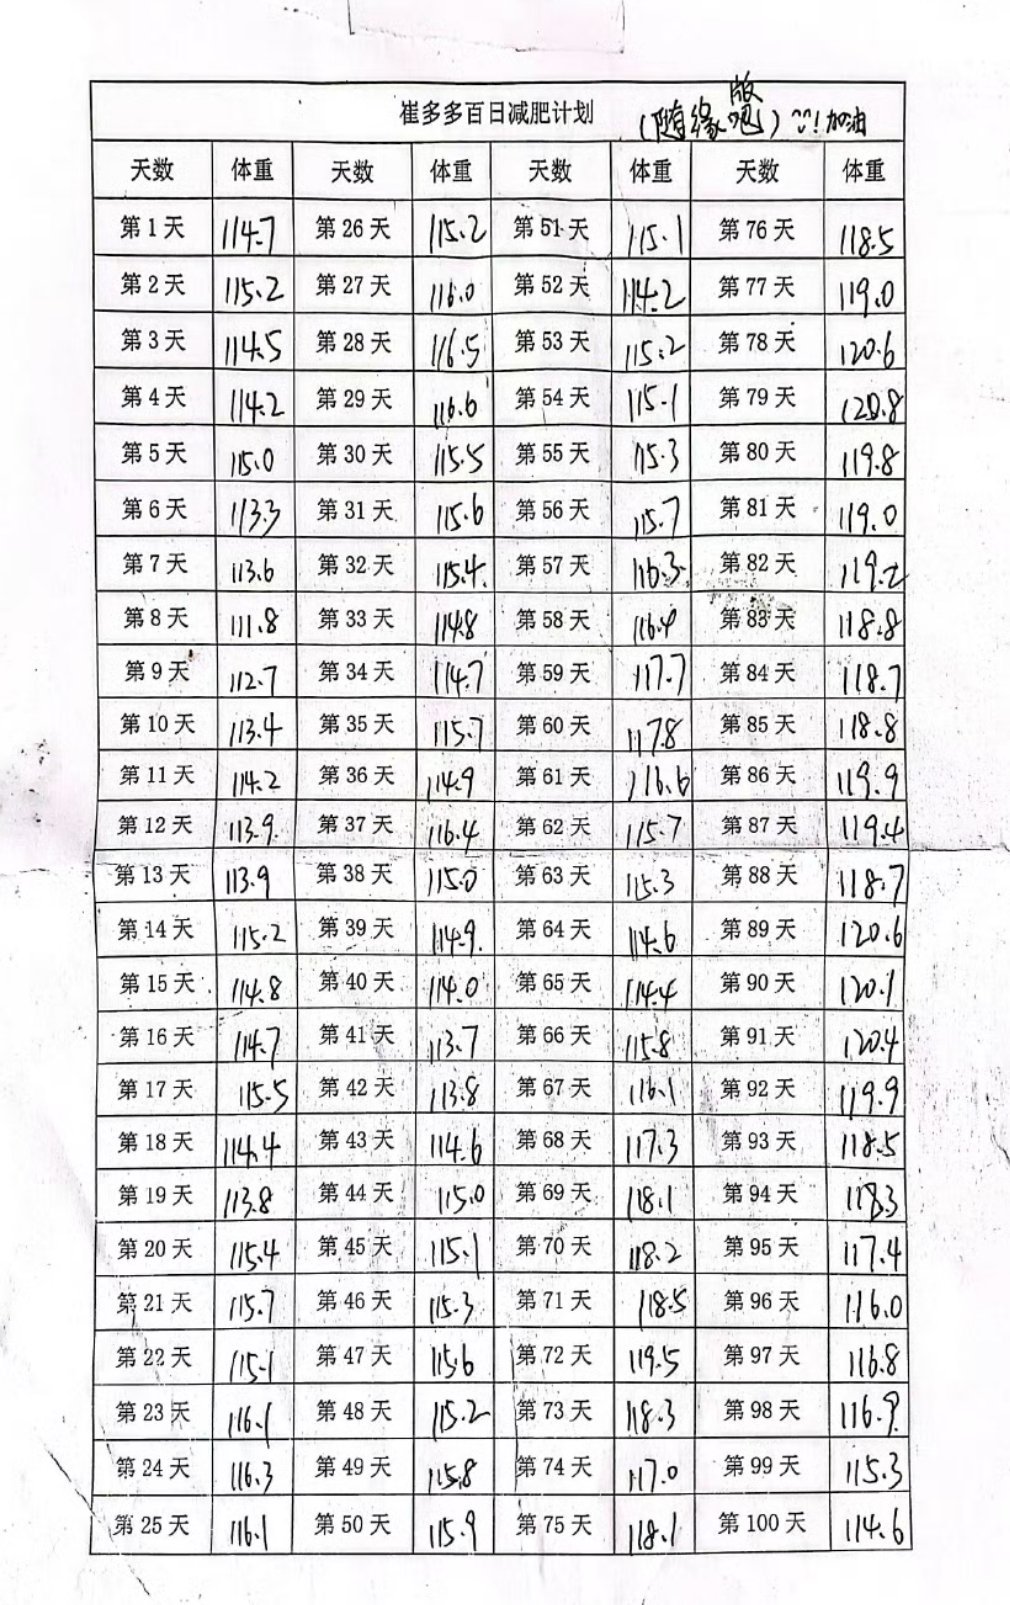 崔多多百日减肥计划 (随缘吧版) 加油
天数 体重 天数 体重 天数 体重 天数 体重
第1天 114.7 第26天 115.2 第51天 115.1 第76天 118.5
第2天 115.2 第27天 116.0 第52天 114.2 第77天 119.0
第3天 114.5 第28天 116.5 第53天 115.2 第78天 120.6
第4天 114.2 第29天 116.6 第54天 115.1 第79天 120.8
第5天 115.0 第30天 115.5 第55天 115.3 第80天 119.8
第6天 113.3 第31天 115.6 第56天 115.7 第81天 119.0
第7天 113.6 第32天 115.4 第57天 116.3 第82天 119.2
第8天 111.8 第33天 114.8 第58天 116.4 第83天 118.8
第9天 112.7 第34天 114.7 第59天 117.7 第84天 118.7
第10天 113.4 第35天 115.7 第60天 117.8 第85天 118.8
第11天 114.2 第36天 114.9 第61天 116.6 第86天 119.9
第12天 113.9 第37天 116.4 第62天 115.7 第87天 119.4
第13天 113.9 第38天 115.0 第63天 115.3 第88天 118.7
第14天 115.2 第39天 114.9 第64天 114.6 第89天 120.6
第15天 114.8 第40天 114.0 第65天 114.4 第90天 120.1
第16天 114.7 第41天 113.7 第66天 115.8 第91天 120.4
第17天 115.5 第42天 113.8 第67天 116.1 第92天 119.9
第18天 114.4 第43天 114.6 第68天 117.3 第93天 118.5
第19天 113.8 第44天 115.0 第69天 118.1 第94天 118.3
第20天 115.4 第45天 115.1 第70天 118.2 第95天 117.4
第21天 115.7 第46天 115.3 第71天 118.5 第96天 116.0
第22天 115.1 第47天 115.6 第72天 119.5 第97天 116.8
第23天 116.1 第48天 115.2 第73天 118.3 第98天 116.9
第24天 116.3 第49天 115.8 第74天 117.0 第99天 115.3
第25天 116.1 第50天 115.9 第75天 118.1 第100天 114.6